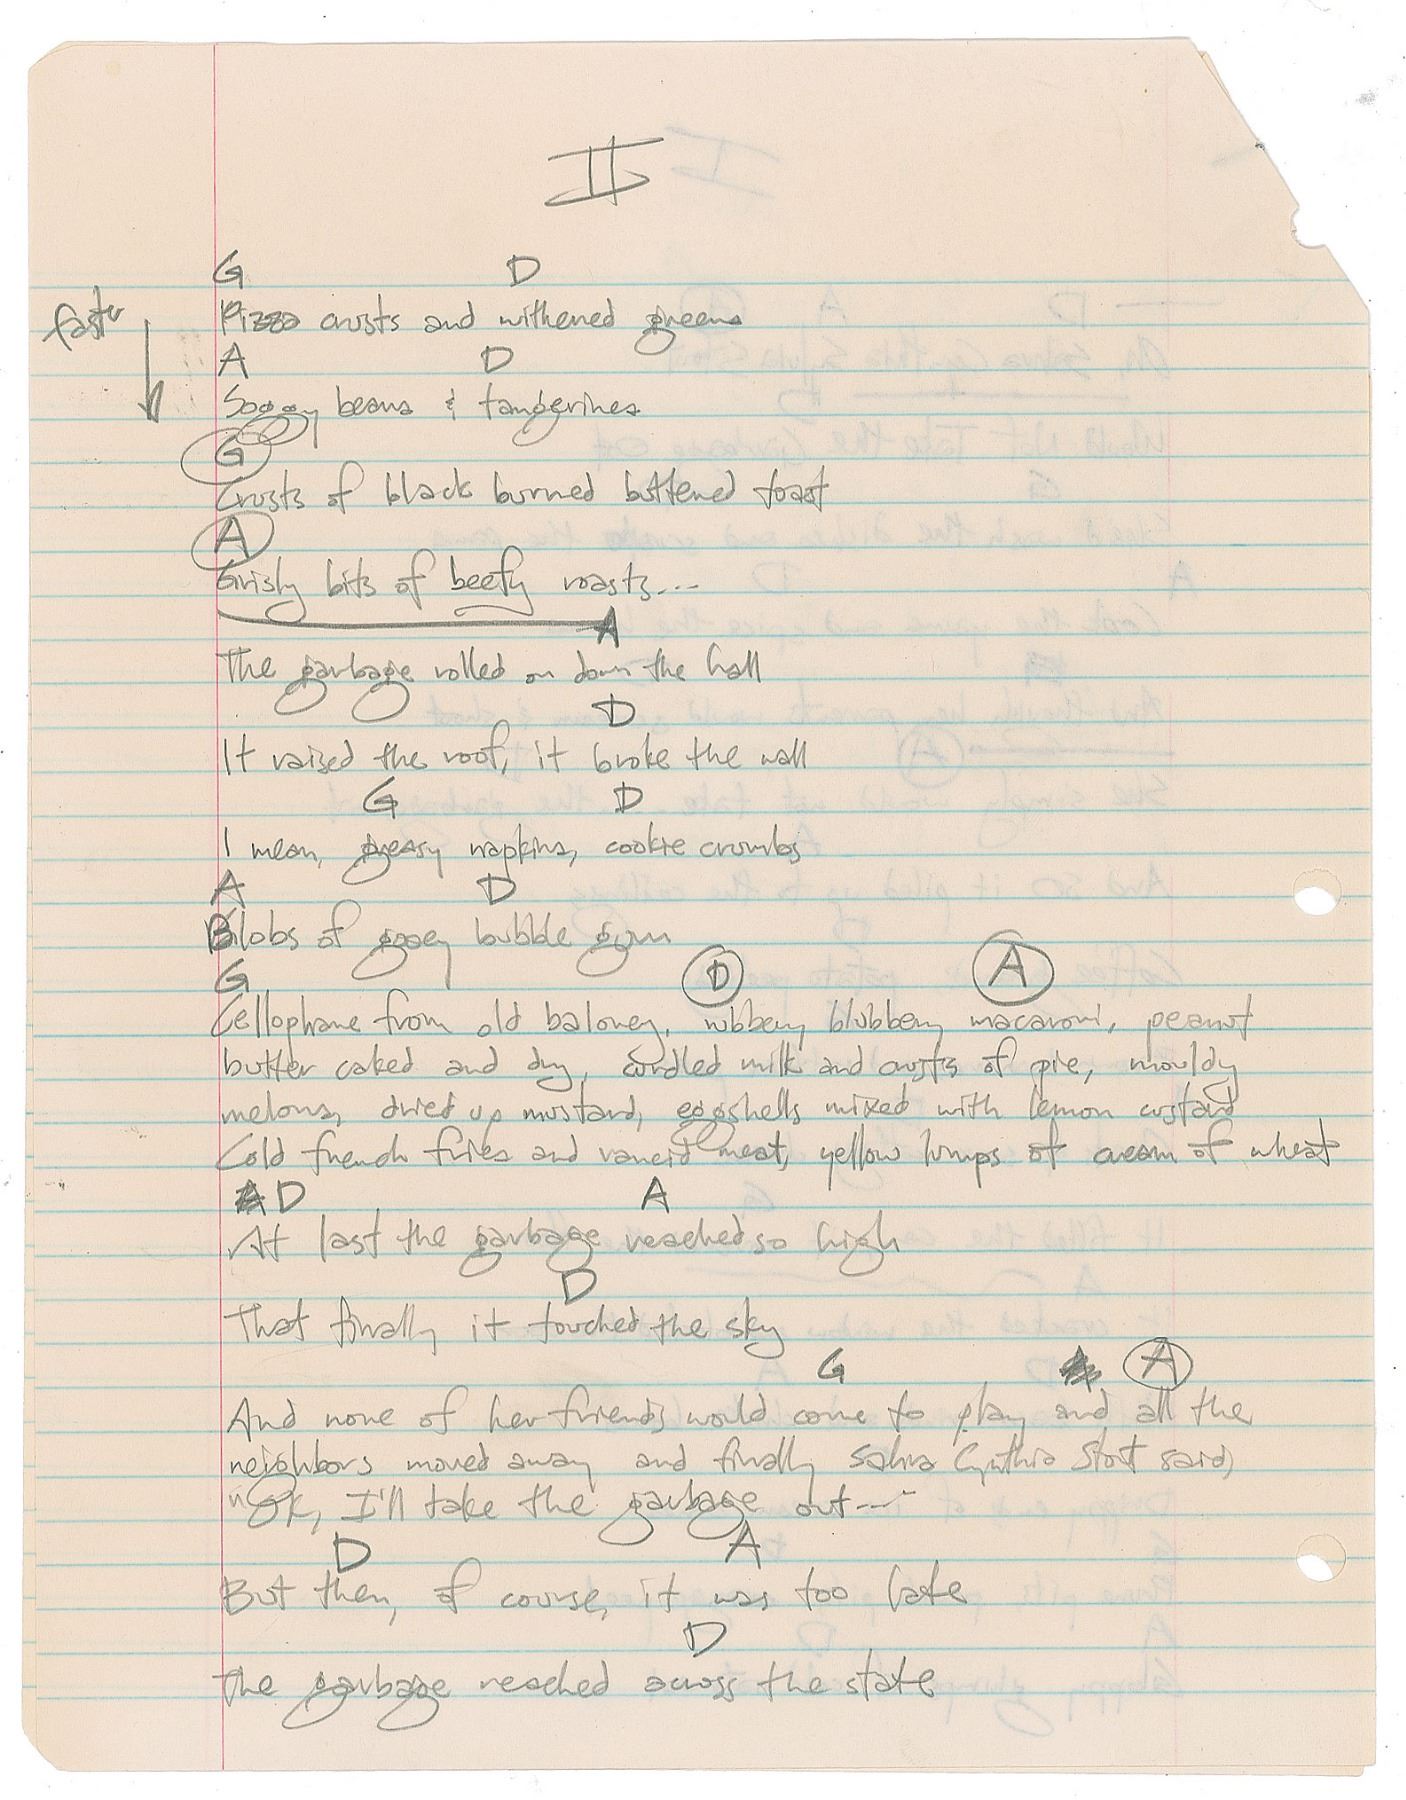 II
G D
faster
Pizza crusts and withered greens
A D
Soggy beans & tangerines
G
Crusts of black burned buttered toast
A
Grisly bits of beefy roasts...
A
The garbage rolled on down the hall
D
It raised the roof, it broke the wall
G D
I mean, greasy napkins, cookie crumbs
A D
Blobs of gooey bubble gum
G D A
Cellophane from old baloney, rubbery blubbery macaroni, peanut
butter caked and dry, curdled milk and crusts of pie, mouldy
melons, dried up mustard, eggshells mixed with lemon custard
Cold french fries and rancid meat, yellow lumps of cream of wheat
A D A
At last the garbage reached so high
D
That finally it touched the sky
G A A
And none of her friends would come to play and all the
neighbors moved away and finally Sahra Cynthia Stout said,
"OK, I'll take the garbage out---"
D A
But then, of course, it was too late
D
The garbage reached across the state